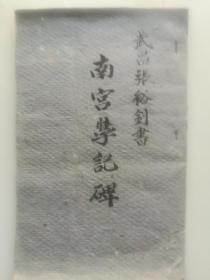 武昌張裕釗書
南宮學記碑